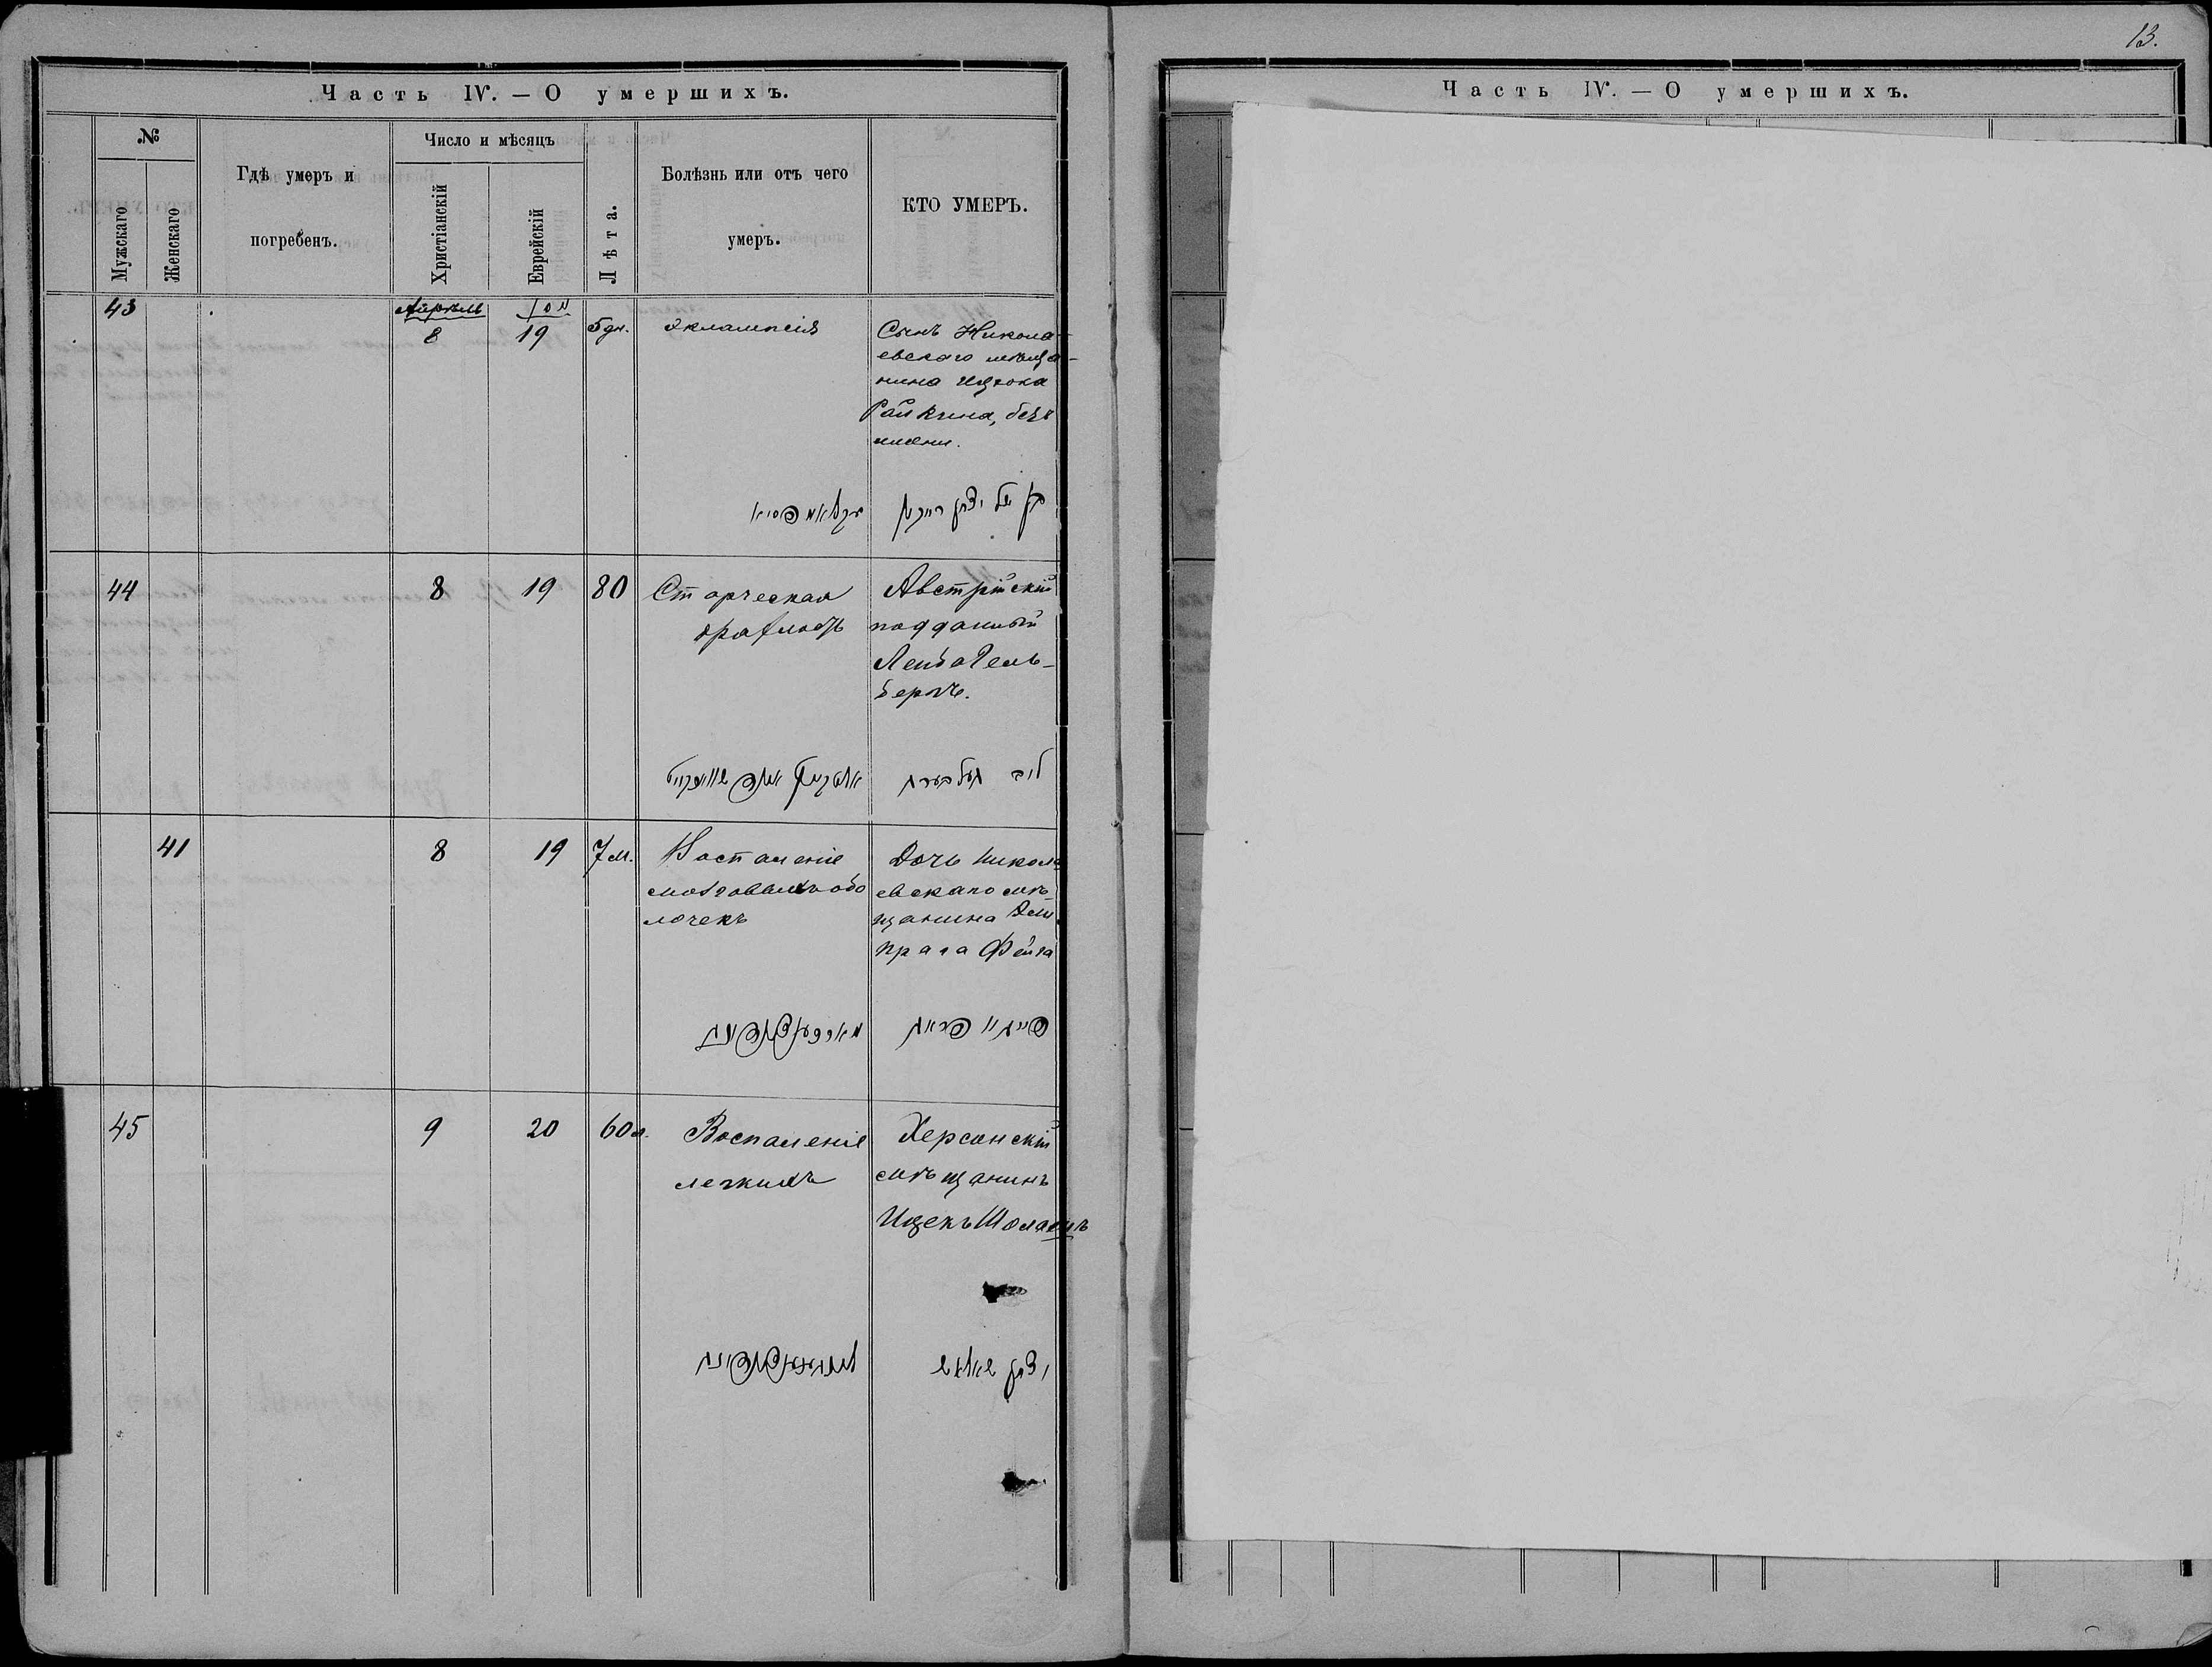 13.
Часть IV. — О умершихъ.
№
Мужскаго
Женскаго
Гдѣ умеръ и
погребенъ.
Число и мѣсяцъ
Христіанскій
Еврейскій
Лѣта.
Болѣзнь или отъ чего
умеръ.
КТО УМЕРЪ.
43
Апрѣль
8
19
5 дн.
Эклампсія
Сынъ Никола-
евскаго мѣща-
нина Ицхока
Райкина, безъ
имени.
בן של יצחק רייקין
44
8
19
80
Старческая
дряхлость
Австрійскій
подданный
Лейба Гель-
бергъ.
ליב געלבערג
41
8
19
7 м.
Воспаленіе
мозговыхъ обо
лочекъ
Дочь Никола
евскаго мѣ-
щанина
Прага Фейга
פייגא פראג
45
9
20
60 л.
Воспаленіе
легкихъ
Херсонскій
мѣщанинъ
Ицекъ
יצחק
Часть IV. — О умершихъ.